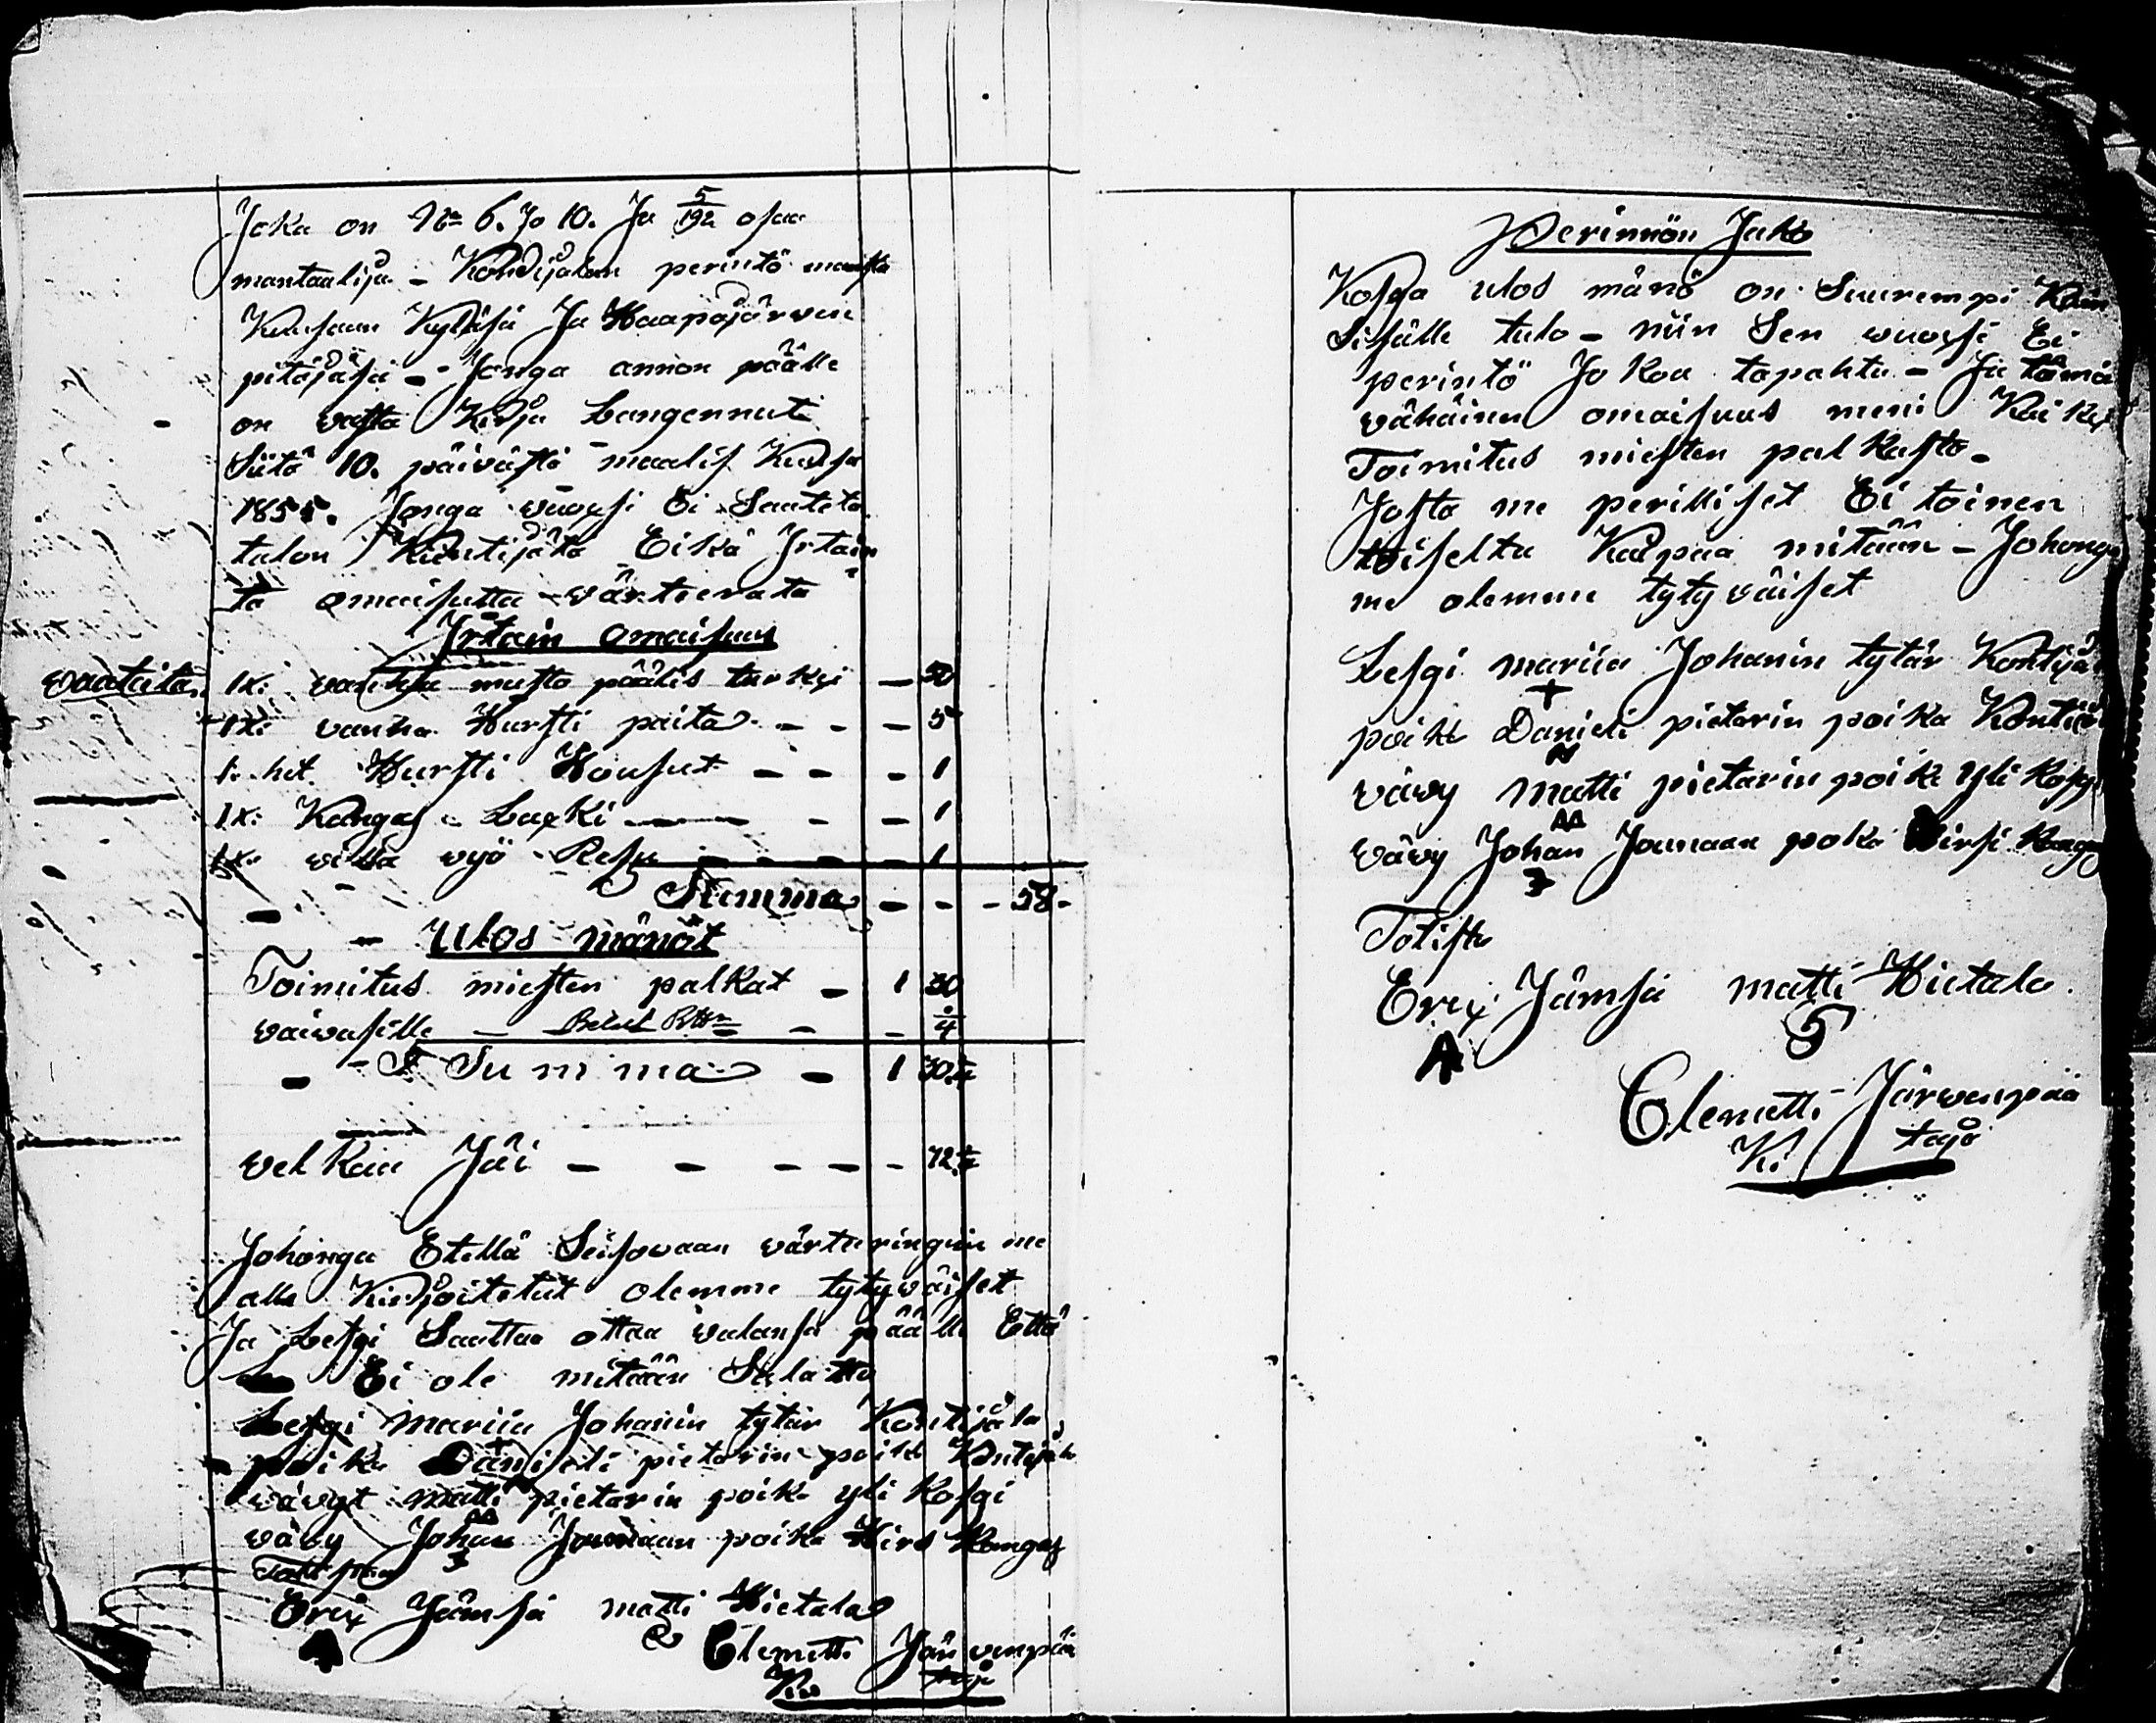 Joka on No 6. Jo 10. Ja 5/192 osaa
mantaalija - Kondijalan perintö maasta
Kylässä Ja Haapajärwen
pitäjäsä - Jonga annon päälle
on wasta Kirja Langennut
Siitä 10. päivästä maalis Kuusa
1855. Jonga wuoxsi Ei Sauteta
talon Kiintijätä Eikä Irtain
ta omaisutta wärteerata
Irtain omaisuus
waateita. 1 K: vanha musta päälis turkxi - 50
1 K: vanha Hursti paita - - - 5
1. het Hursti Housut - - - 1
1 K: Kangas Lakxi - - - 1
1 K: willa wyö Resu - - - 1
Summa - - - 58 -
Ulos mänöt
Toimitus miesten palkat - 1 30
waiwasille - - - 1/4
Summa - 1 30 1/4
welkaa Jäi - - - - - 72 1/4
Johonga Etellä Seisowaan wärteringiin me
alla Kirjoitetut olemme tytywäiset
Ja Lesgi Saattaa ottaa walansa päälle Että
Ei ole mitään Salattu
Lesgi mariia Johanin tytär Kontijala
poika Danieli pietarin poika Kontijala
wävyt matti pietarin poika yli Kosgi
wävy Johan Jounaan poika Hirsi Kangas
Erix Jämsä matti Hietala
Clemetti Järwenpää
K. taja
Perinnön Jako
Kosga ulos mänö on Suurempi Kuin
Sisälle tulo - niin Sen wuoxsi Ei
perintö Jakoa tapahtu - Ja tämä
vähäinen omaisuus meni Kaikxi
Toimitus miesten palkasta -
Josta me perilliset Ei toinen
toiselta Kaipaa mitään - Johonga
me olemme tytyväiset
Lesgi mariia Johanin tytär Kontijala
+
poika Danieli pietarin poika Kontijala
N
vävy matti pietarin poika yli Kosgi
AA
vävy Johan Jounaan poka Hirsi Kangas
3
Totista
Erix Jämsä matti Hietala
A
Clemetti Järwenpää
K. taja